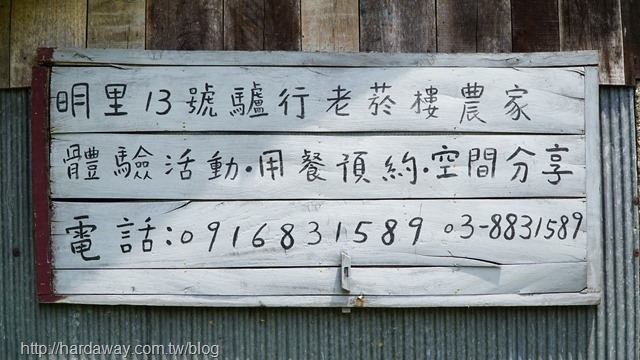 明里13號驢行老菸樓農家
體驗活動·用餐預約·空間分享
電話:0916831589 03-8831589
http://hardaway.com.tw/blog